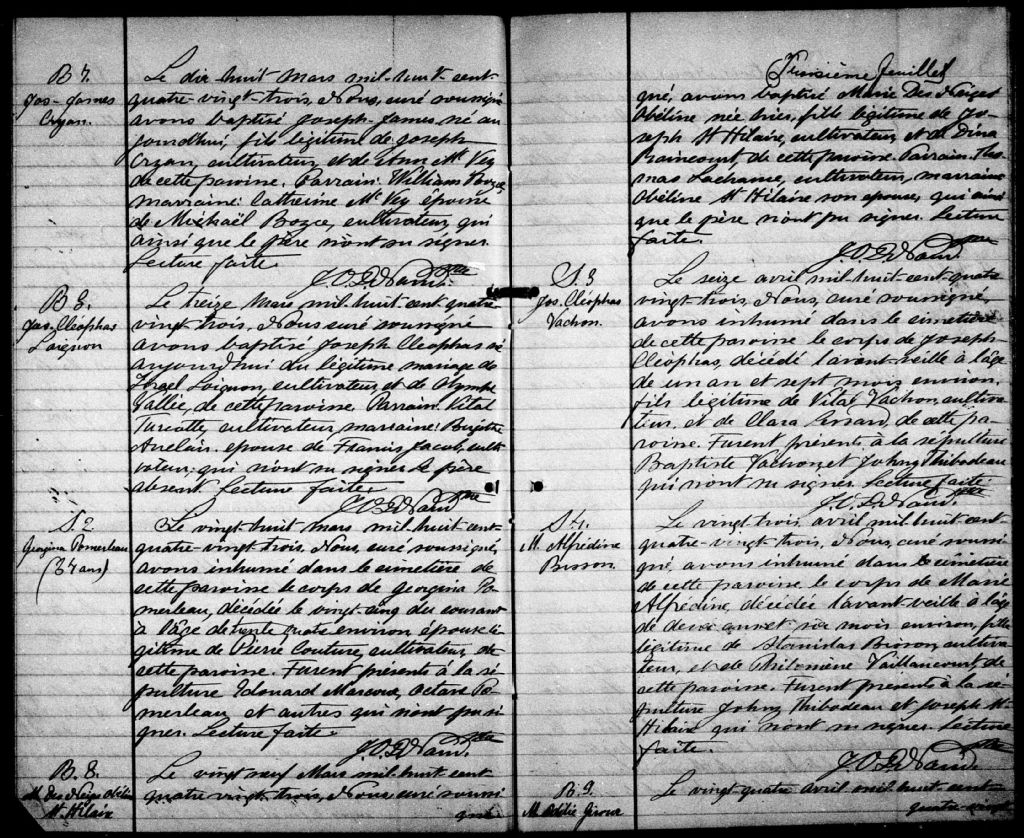 B 7.
Jos-James
Cryan.
Le dix huit mars mil-huit-cent-
quatre-vingt-trois, Nous, curé soussigné
avons baptisé Joseph-James né au
jourd'hui, fils légitime de Joseph
Cryan, cultivateur, et de Ann Mc Vey
de cette paroisse. Parrain: William Boyce,
marraine: Catherine Mc Vey épouse
de Michaël Boyce, cultivateur, qui
ainsi que le père n'ont su signer.
Lecture faite.
Ptre
Jos-Cléophas
Loignon
Le treize Mars mil-huit-cent-quatre
vingt-trois, Nous curé soussigné
avons baptisé Joseph Cléophas né
aujourd'hui du légitime mariage de
Israel Loignon, cultivateur et de Olympe
Vallée, de cette paroisse. Parrain Vital
Turcotte, cultivateur, marraine: Brigitte
épouse de Francis Jacob, culti
vateur; qui n'ont su signer. Le père
absent. Lecture faite.
Ptre
S. 2
Georgina Pomerleau
(34 ans)
Le vingt-huit mars mil huit cent-
quatre-vingt-trois, Nous, curé soussigné,
avons inhumé dans le cimetière de
cette paroisse le corps de Georgina Po-
merleau, décédée le vingt-cinq du courant
à l'âge de trente quatre environ, épouse lé-
gitime de Pierre Couture, cultivateur, de
cette paroisse. Furent présents à la sé
pulture Edouard Marcoux, Octave Po-
merleau et autres qui n'ont pu si-
gner. Lecture faite.
Ptre
B. 8.
M. Des Neiges Obéline
St. Hilaire
Le vingt neuf Mars mil-huit cent
quatre vingt-trois, Nous curé soussi
gné
Troisième feuillet
gné, avons baptisé Marie Des Neiges
Obéline née hier, fille légitime de Jo-
seph St Hilaire, cultivateur, et de Dina
de cette paroisse. Parrain, Tho
mas Lachance, cultivateur, marraine
Obéline St Hilaire son épouse, qui ainsi
que le père n'ont pu signer. Lecture
faite.
Ptre
S. 3
Jos. Cléophas
Vachon.
Le seize avril mil-huit-cent-quatre
vingt-trois, Nous, curé soussigné,
avons inhumé dans le cimetière
de cette paroisse le corps de Joseph-
Cléophas, décédé l'avant-veille à l'âge
de un an et sept mois environ,
fils légitime de Vital Vachon, cultiva
teur, et de Clara de cette pa-
roisse. Furent présents à la sépulture
Baptiste Vachon, et Johny Thibodeau
qui n'ont su signer. Lecture faite.
Ptre
S. 4.
M. Alfrédine
Bisson.
Le vingt trois avril mil-huit cent-
quatre-vingt-trois, Nous, curé soussi
gné, avons inhumé dans le cimetière
de cette paroisse le corps de Marie
Alfrédine, décédée l'avant-veille à l'âge
de et six mois environ, fille
légitime de Stanislas Bisson, cultiva-
teur, et de Philomène Vaillancourt, de
cette paroisse. Furent présents à la sé-
pulture Johny Thibodeau et Joseph St
Hilaire qui n'ont su signer. Lecture
faite.
Ptre
B. 9.
M. Addée Giroux
Le vingt quatre avril mil-huit cent
quatre-vingt